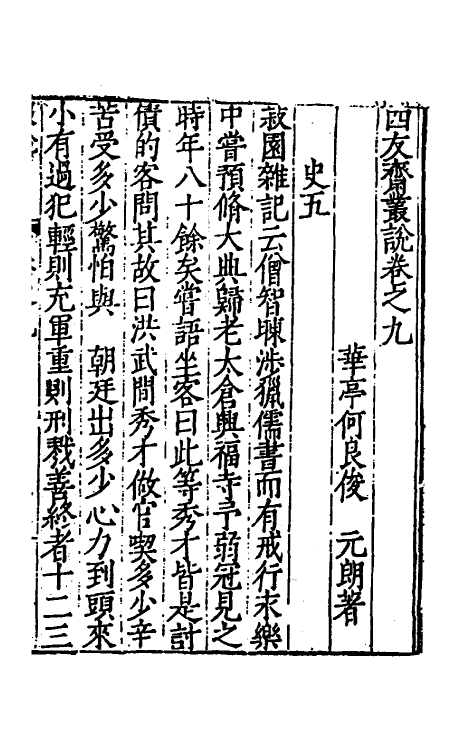 四友齋叢說卷之九
華亭何良俊　元朗著
史五
菽園雜記云僧智暕涉獵儒書而有戒行永樂
中嘗預脩大典歸老太倉興福寺予弱冠見之
時年八十餘矣嘗語坐客曰此等秀才皆是討
債的客問其故曰洪武間秀才做官喫多少辛
苦受多少驚怕與　朝廷出多少心力到頭來
小有過犯輕則充軍重則刑戮善終者十二三